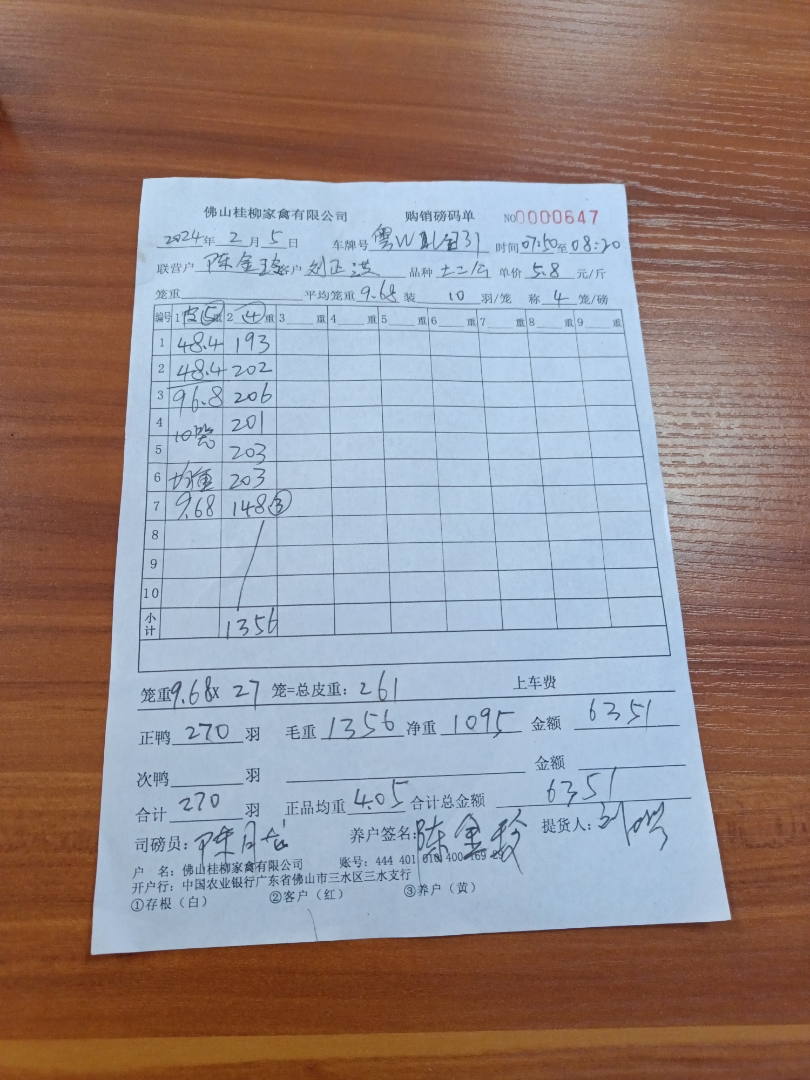 佛山桂柳家禽有限公司 购销磅码单 NO0000647
2024年2月5日 车牌号 粤W 时间07:50至08:20
联营户 陈金珍 客户 刘正洪 品种 土二公 单价 5.8 元/斤
笼重 平均笼重 9.68 装 10 羽/笼 称 4 笼/磅
编号 1 皮⑤重 2 ④ 重 3 重 4 重 5 重 6 重 7 重 8 重 9 重
1 48.4 193
2 48.4 202
3 96.8 206
4 10笼 201
5 203
6 均重 203
7 9.68 148③
8
9
10
小计 1356
笼重9.68X 27 笼=总皮重：261 上车费
正鸭 270 羽 毛重 1356 净重 1095 金额 6351
次鸭 羽 金额
合计 270 羽 正品均重 4.05 合计总金额 6351
司磅员：陈 养户签名：陈金珍 提货人：刘
户 名：佛山桂柳家禽有限公司 账号：444 401 010 400 169
开户行：中国农业银行广东省佛山市三水区三水支行
①存根（白） ②客户（红） ③养户（黄）